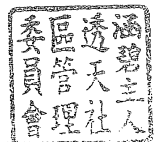 涵碧主人
透天社
區管理
委員會